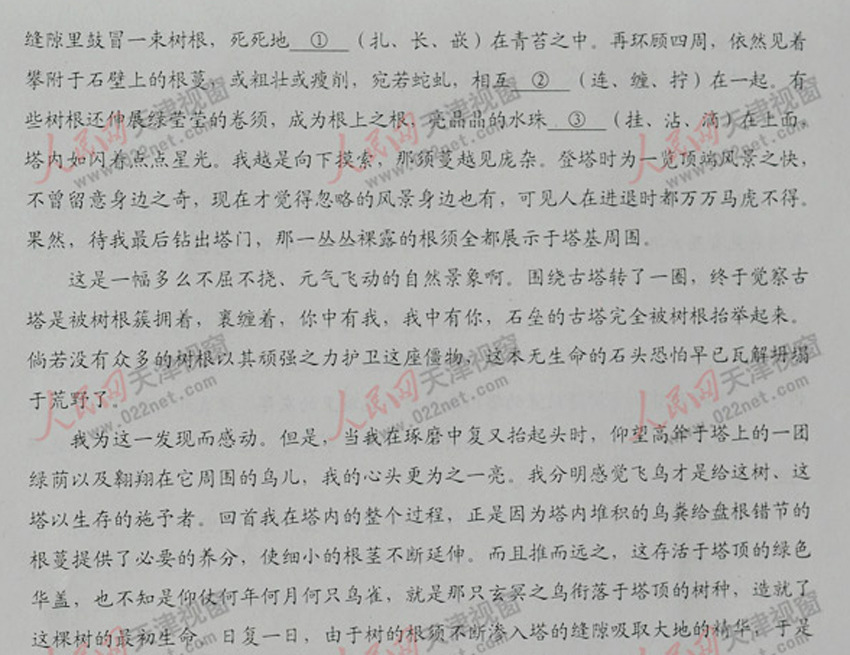 缝隙里鼓冒一束树根，死死地 ① （扎、长、嵌）在青苔之中。再环顾四周，依然见着
攀附于石壁上的根蔓，或粗壮或瘦削，宛若蛇虬，相互 ② （连、缠、拧）在一起。有
些树根还伸展绿莹莹的卷须，成为根上之根，亮晶晶的水珠 ③ （挂、沾、滴）在上面，
塔内如闪着点点星光。我越是向下摸索，那须蔓越见庞杂。登塔时为一览顶端风景之快，
不曾留意身边之奇，现在才觉得忽略的风景身边也有，可见人在进退时都万万马虎不得。
果然，待我最后钻出塔门，那一丛丛裸露的根须全都展示于塔基周围。
这是一幅多么不屈不挠、元气飞动的自然景象啊。围绕古塔转了一圈，终于觉察古
塔是被树根簇拥着，裹缠着，你中有我，我中有你，石垒的古塔完全被树根抬举起来。
倘若没有众多的树根以其顽强之力护卫这座僵物，这本无生命的石头恐怕早已瓦解坍塌
于荒野了。
我为这一发现而感动。但是，当我在琢磨中复又抬起头时，仰望高耸于塔上的一团
绿荫以及翱翔在它周围的鸟儿，我的心头更为之一亮。我分明感觉飞鸟才是给这树、这
塔以生存的施予者。回首我在塔内的整个过程，正是因为塔内堆积的鸟粪给盘根错节的
根蔓提供了必要的养分，使细小的根茎不断延伸。而且推而远之，这存活于塔顶的绿色
华盖，也不知是仰仗何年何月何只鸟雀，就是那只玄冥之鸟衔落于塔顶的树种，造就了
这棵树的最初生命。日复一日，由于树的根须不断渗入塔的缝隙吸取大地的精华，于是
人民网天津视窗
www.022net.com
人民网天津视窗
www.022net.com
人民网天津视窗
www.022net.com
人民网天津视窗
www.022net.com
人民网天津视窗
www.022net.com
人民网天津视窗
www.022net.com
人民网天津视窗
人民网天津视窗
人民网天津视窗